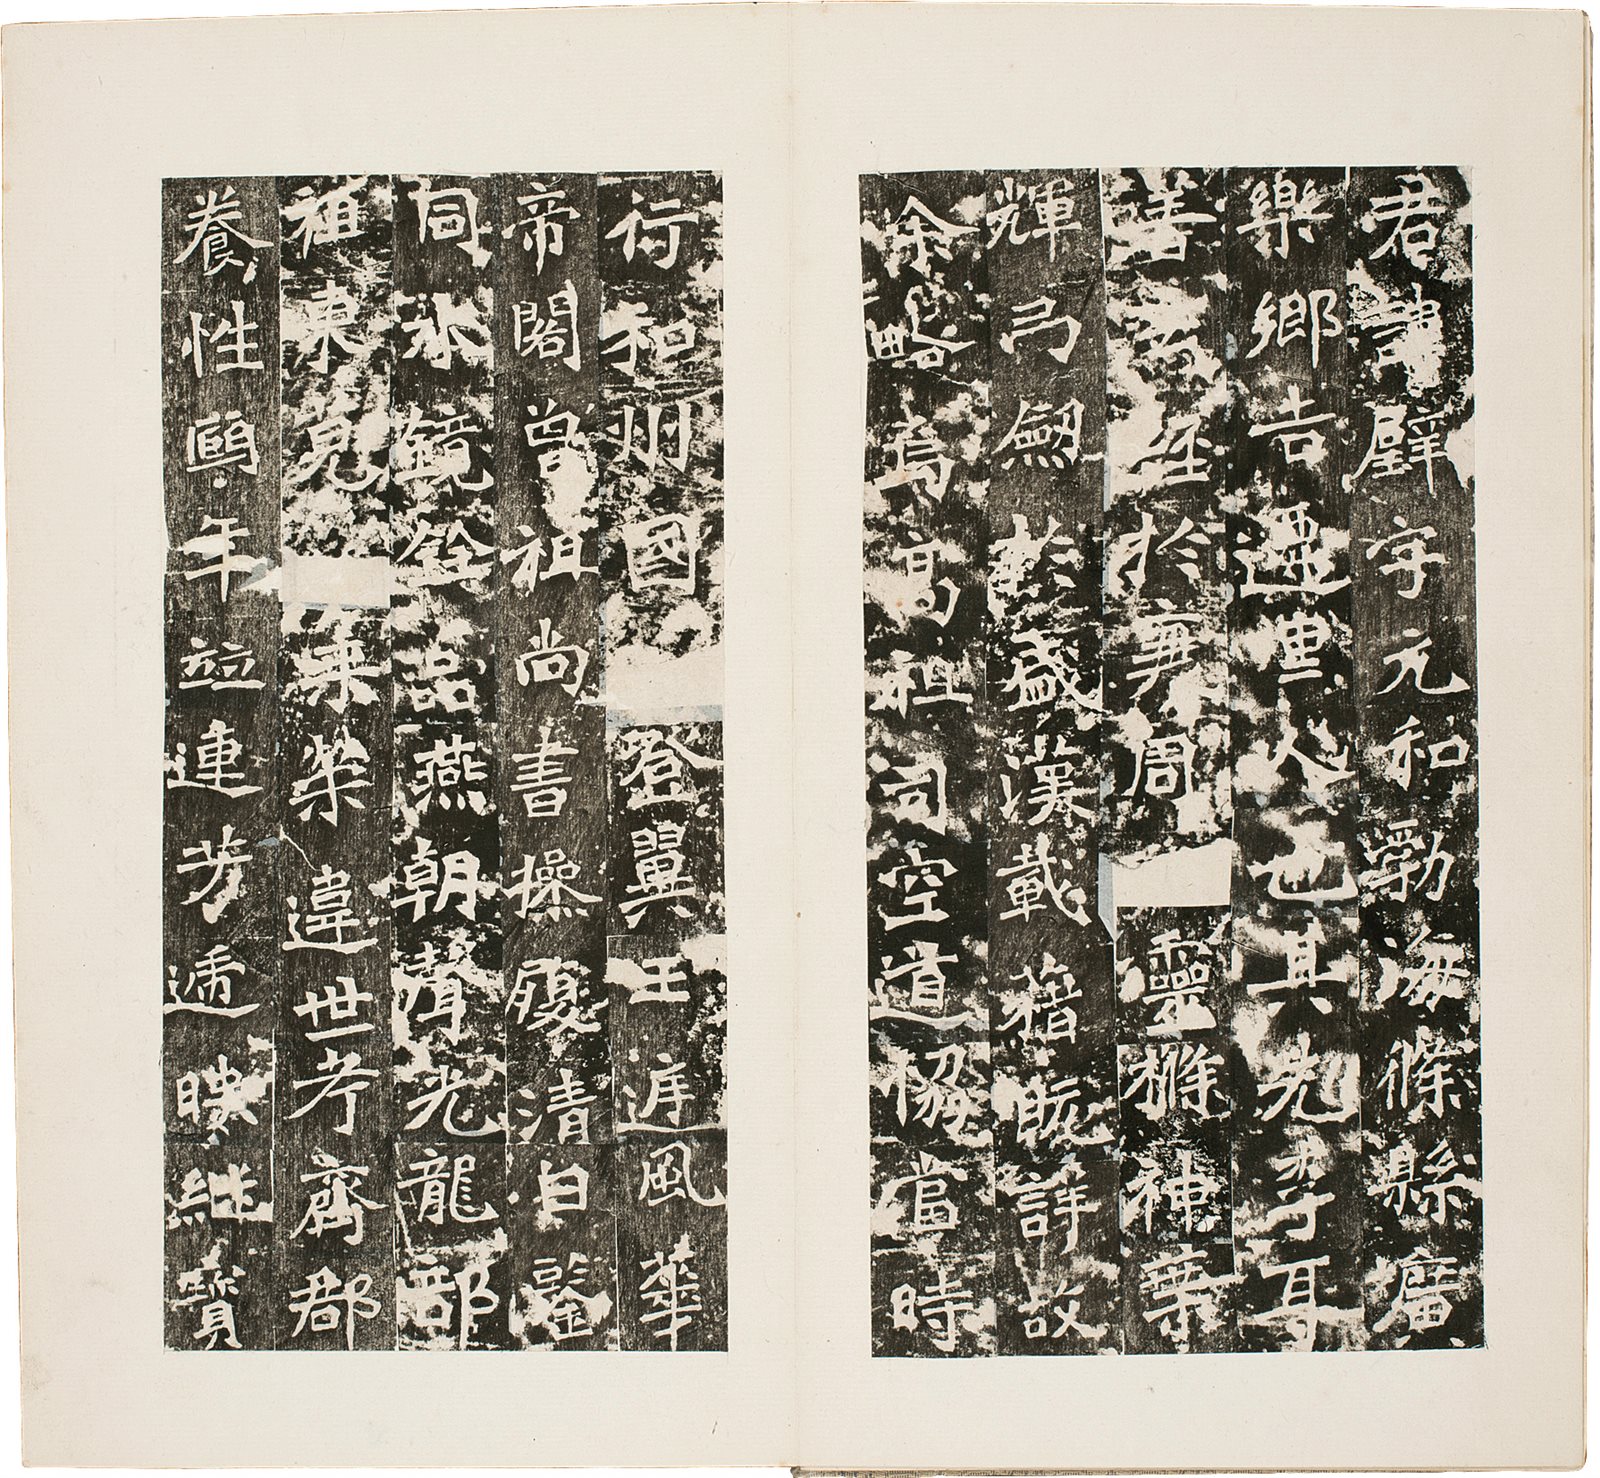 君諱璧字元和勃海條縣廣
樂鄉吉遷里人也其先李耳
著經於衰周靈神葉
輝弓劔於盛漢載籍既詳故
余略焉高祖司空道協當時
行和州國登翼王庭風華
帝閣曾祖尚書操履清白鑒
同氷鏡銓品燕朝聲光龍部
祖東莞乘榮違世考齊郡
養性頤年並連芳遞映繼寶